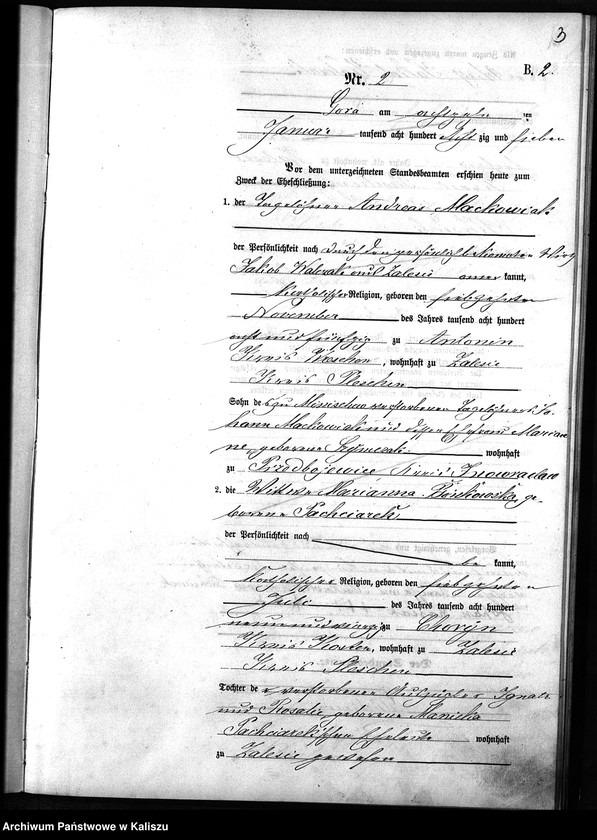 3
B. 2.
Nr. 2
Gora am achtzehn ten
Januar tausend acht hundert achtzig und sieben
Vor dem unterzeichneten Standesbeamten erschien heute zum
Zweck der Eheschließung:
1. der Tagelöhner Andreas Maćkowiak
der Persönlichkeit nach durch den persönlich bekannten Wirth
Jakob Walczak aus Zalesie aner kannt,
katholischer Religion, geboren den siebzehnten
November des Jahres tausend acht hundert
acht und fünfzig zu Antonin
Kreis Wreschen, wohnhaft zu Zalesie
Kreis Pleschen
Sohn des zu verstorbenen Tagelöhners Jo-
hann Maćkowiak und dessen Ehefrau Marian-
ne, geborene wohnhaft
zu Przedbojewice Kreis Inowrazlaw
2. die Wittwe Marianna ge-
borene Pachciarek
der Persönlichkeit nach
be kannt,
katholischer Religion, geboren den siebzehnten
Juli des Jahres tausend acht hundert
neun und vierzig zu Choryn
Kreis Kosten, wohnhaft zu Zalesie
Kreis Pleschen
Tochter der verstorbenen Auszügler Ignatz
und Rosalie geborene
Pachciarek'schen Eheleute wohnhaft
zu Zalesie gewesen
Archiwum Państwowe w Kaliszu